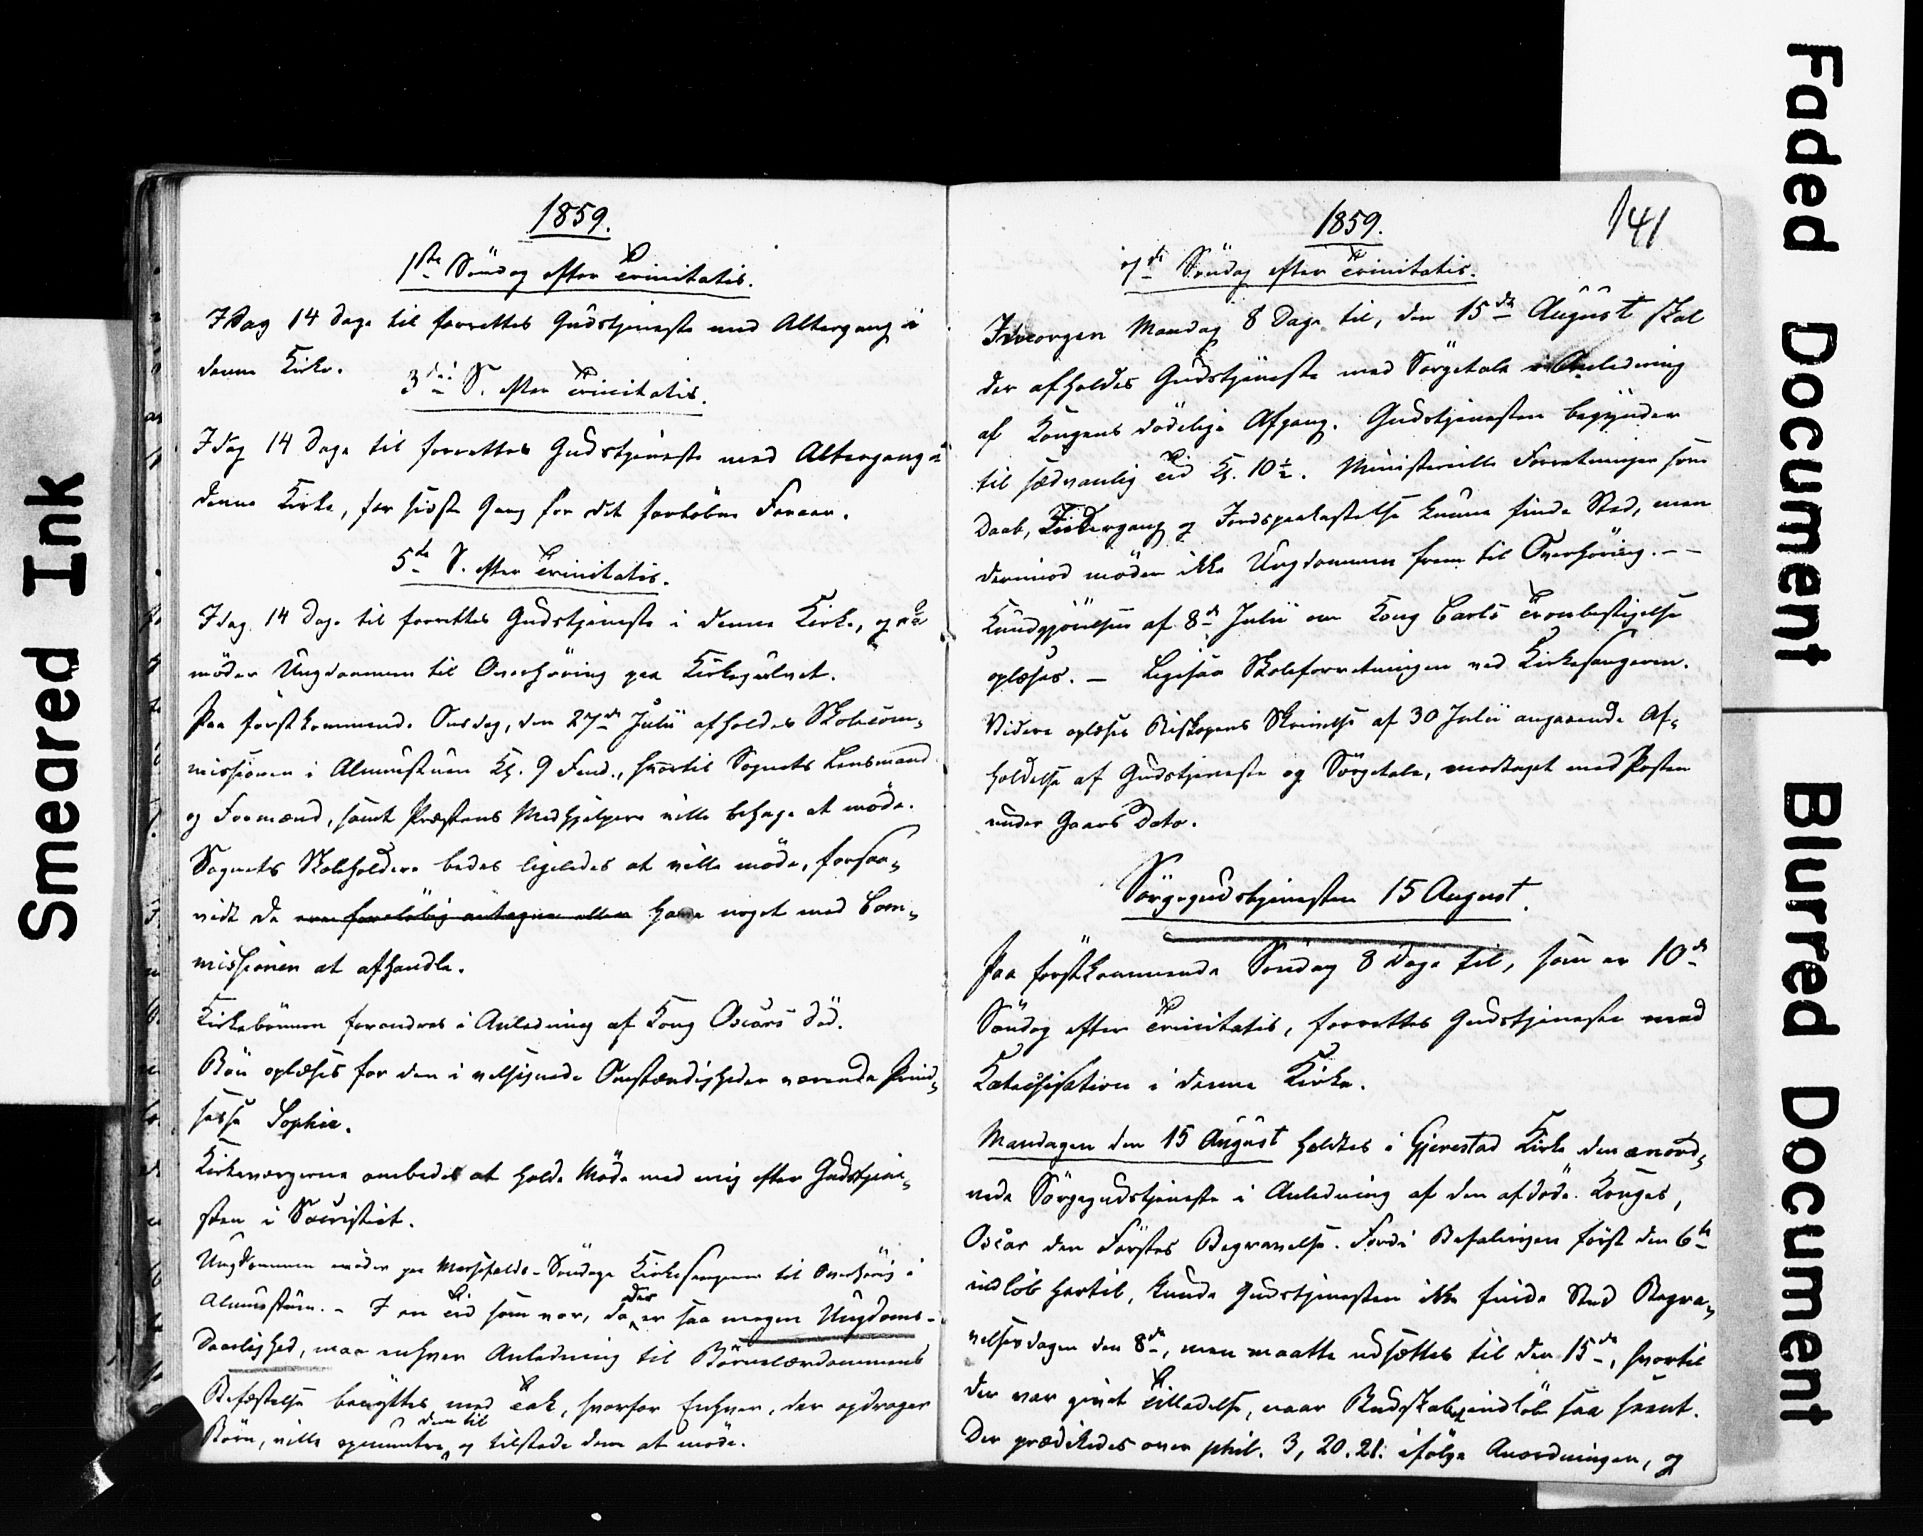 1859.
1ste Søndag efter Trinitatis.
I Dag 14 Dage til forrettes Gudstjeneste med Altergang i
denne Kirke.
3die S. efter Trinitatis.
I dag 14 Dage til forrettes Gudstjeneste med Altergang i
denne Kirke, for sidste Gang for det forløbne Foraar.
5te S. efter Trinitatis.
I dag 14 Dage til forrettes Gudstjeneste i denne Kirke, og da
møder Ungdommen til Overhøring paa Kirkegulvet.
Paa førstkommende Onsdag, den 27de Julii afholdes Skolecom-
missionen i Almuestuen Kl. 9 Formd., hvortil Sognets Lensmand
og Formænd, samt Præstens Medhjelpere ville behage at møde.
Sognets Skoleholdere bedes ligeledes at ville møde, forsaa-
vidt de ere foreløbig antagne eller have noget med Com-
missionen at afhandle.
Kirkebønnen forandres i Anledning af Kong Oscars Död.
Bön oplæses for den i velsignede Omstændigheder værende Prind-
sesse Sophie.
Kirkeværgerne ombedes at holde Möde med mig efter Gudstjene-
sten i Sacristiet.
Ungdommen møder paa Messefalds-Søndage Kirkesangeren til Overhøring i
Almuestuen. - I en Tid som vor, da der er saa megen Ungdoms-
Daarlighed, maa enhver Anledning til Börnelærdommens
Befæstelse benyttes med Tak, hvorfor Enhver, der opdrager
Börn, ville opmuntre dem til og tilstede dem at møde.
1859.
141
7de Søndag efter Trinitatis.
Imorgen Mandag 8 Dage til, den 15de August skal
der afholdes Gudstjeneste med Sörgetale i Anledning
af Kongens dödelige Afgang. Gudstjenesten begynder
til sædvanlig Tid Kl. 10½. Ministerielle Forretninger som
Daab, Kirkegang og Jordspaakastelse kunne finde Sted, men
derimod møder ikke Ungdommen frem til Overhøring. - -
Kundgjörelsen af 8de Julii om Kong Carls Tronbestigelse
oplæses. - Ligesaa Skoleforretningen ved Kirkesangeren.
Videre oplæses Biskopens Skrivelse af 30 Julii angaaende Af-
holdelse af Gudstjeneste og Sörgetale, modtaget med Posten
under Gaars Dato.
Sörgegudstjenesten 15 August.
Paa förstkommende Søndag 8 Dage til, som er 10de
Søndag efter Trinitatis, forrettes Gudstjeneste med
Katechisation i denne Kirke.
Mandagen den 15 August holdtes i Gjerestad Kirke den anord-
nede Sörgegudstjeneste i Anledning af den afdøde Konges,
Oscar den Förstes Begravelse. Fordi Befalingen först den 6te
indlöb hertil, kunde Gudstjenesten ikke finde Sted Begra-
velsesdagen den 8de, men maatte udsættes til den 15de, hvortil
der var givet Tilladelse, naar Budskabet indlöb saa seent.
Der prædikedes over phil. 3, 20.21. ifölge Anordningen, og
Smeared Ink
Faded Document
Blurred Document